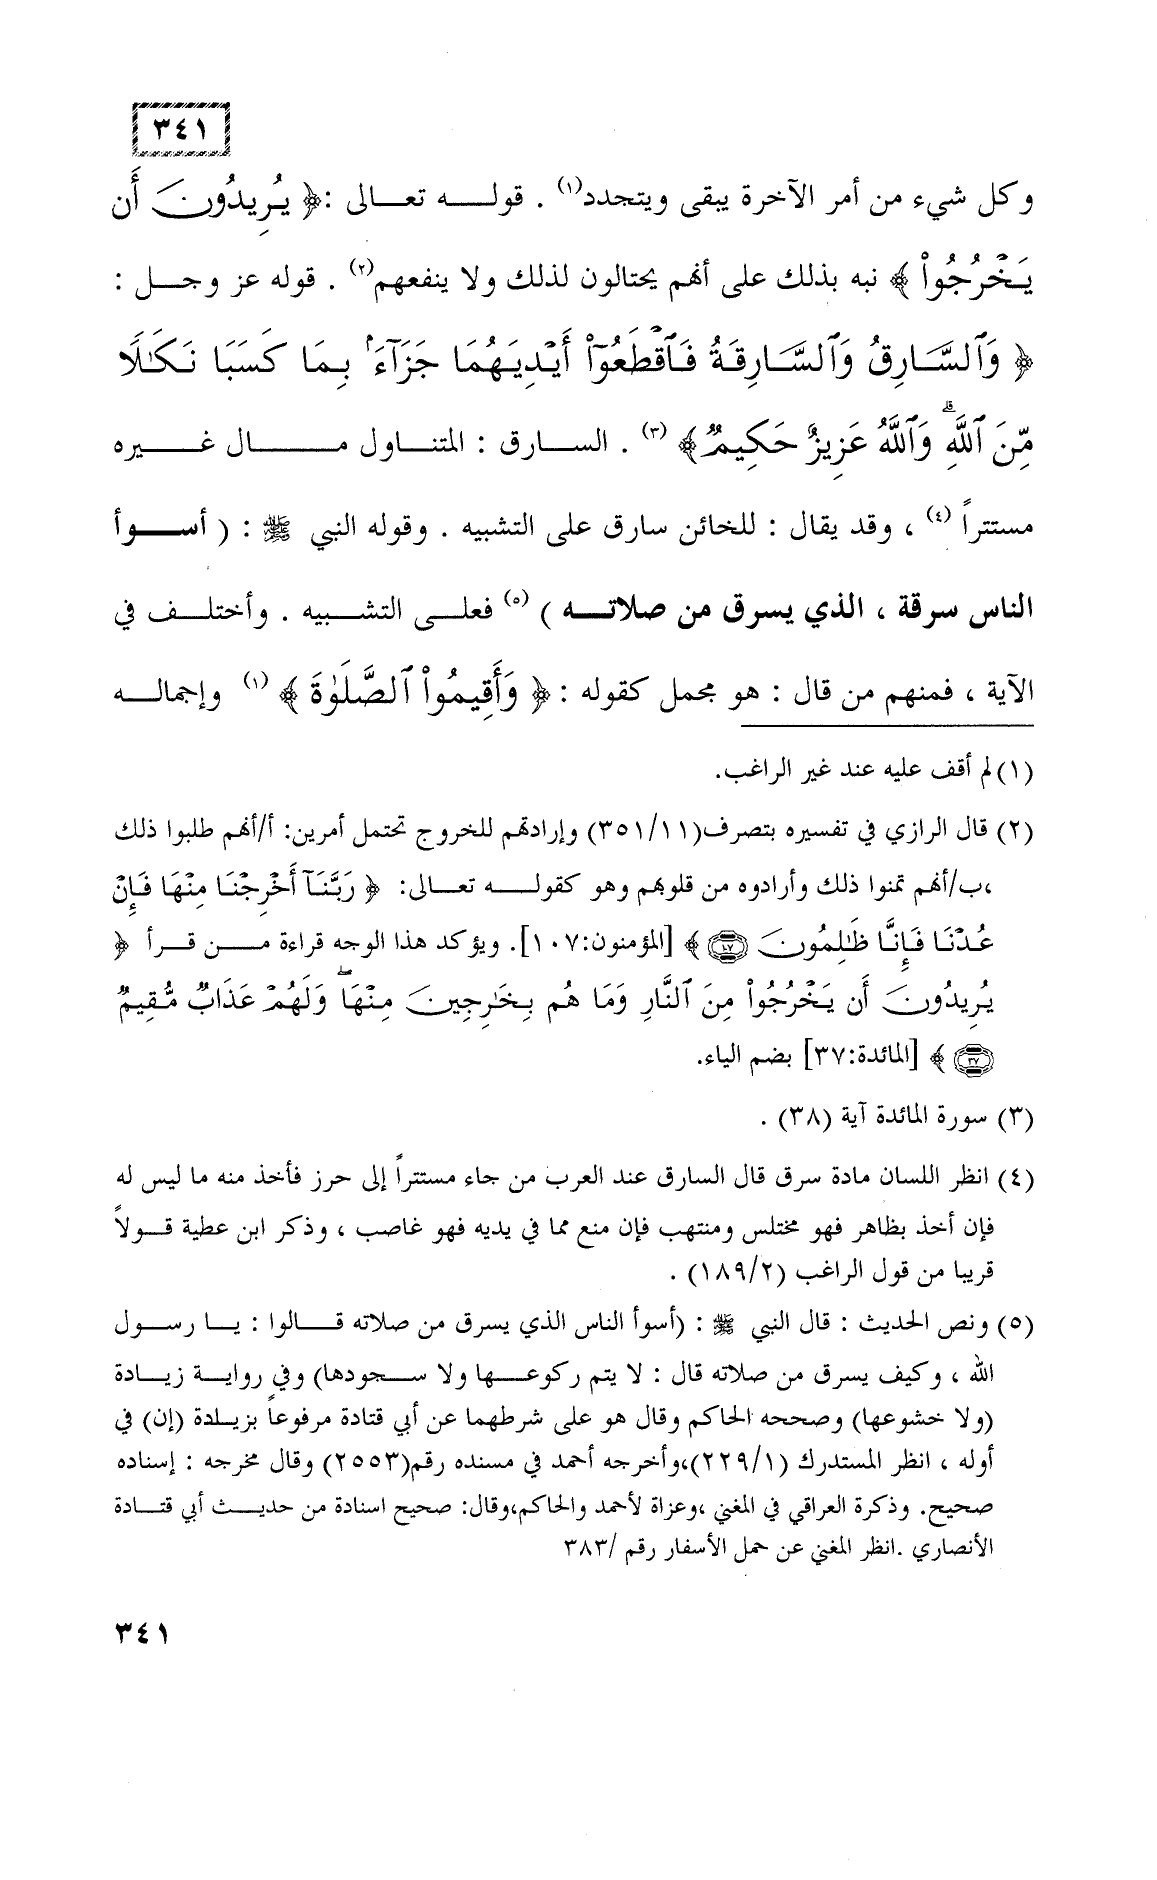 ٣٤١
وكل شيء من أمر الآخرة يبقى ويتجدد(١) . قولـــه تعـــالى :﴿ يُرِيدُونَ أَن
يَخْرُجُواْ ﴾ نبه بذلك على أنهم يحتالون لذلك ولا ينفعهم(٢) . قوله عز وجـــل :
﴿ وَٱلسَّارِقُ وَٱلسَّارِقَةُ فَٱقْطَعُوٓاْ أَيْدِيَهُمَا جَزَآءَۢ بِمَا كَسَبَا نَكَـٰلًا
مِّنَ ٱللَّهِۗ وَٱللَّهُ عَزِيزٌ حَكِيمٌ﴾ (٣) . الســـارق : المتنـــاول مـــال غـــيره
مستتراً (٤) ، وقد يقال : للخائن سارق على التشبيه . وقوله النبي ﷺ : ( أســـوأ
الناس سرقة ، الذي يسرق من صلاتـــه ) (٥) فعلـــى التشـــبيه . وأختلـــف في
الآية ، فمنهم من قال : هو مجمل كقوله :﴿ وَأَقِيمُواْ ٱلصَّلَوٰةَ ﴾ (١) وإجمالـــه
(١)لم أقف عليه عند غير الراغب.
(٢) قال الرازي في تفسيره بتصرف(٣٥١/١١) وإرادتهم للخروج تحتمل أمرين: أ/أنهم طلبوا ذلك
،ب/أنهم تمنوا ذلك وأرادوه من قلوبهم وهو كقولـــه تعـــالى: ﴿ رَبَّنَآ أَخْرِجْنَا مِنْهَا فَإِنْ
عُدْنَا فَإِنَّا ظَـٰلِمُونَ ١٠٧ ﴾ [المؤمنون:١٠٧]. ويؤكد هذا الوجه قراءة مـــن قـــرأ ﴿
يُرِيدُونَ أَن يَخْرُجُواْ مِنَ ٱلنَّارِ وَمَا هُم بِخَـٰرِجِينَ مِنْهَاۖ وَلَهُمْ عَذَابٌ مُّقِيمٌ
٣٧ ﴾ [المائدة:٣٧] بضم الياء.
(٣) سورة المائدة آية (٣٨) .
(٤) انظر اللسان مادة سرق قال السارق عند العرب من جاء مستتراً إلى حرز فأخذ منه ما ليس له
فإن أخذ بظاهر فهو مختلس ومنتهب فإن منع مما في يديه فهو غاصب ، وذكر ابن عطية قـــولاً
قريبا من قول الراغب (١٨٩/٢) .
(٥) ونص الحديث : قال النبي ﷺ : (أسوأ الناس الذي يسرق من صلاته قـــالوا : يـــا رســـول
الله ، وكيف يسرق من صلاته قال : لا يتم ركوعـــها ولا ســـجودها) وفي روايـــة زيـــادة
(ولا خشوعها) وصححه الحاكم وقال هو على شرطهما عن أبي قتادة مرفوعاً بزيادة (إن) في
أوله ، انظر المستدرك (٢٢٩/١)،وأخرجه أحمد في مسنده رقم(٢٥٥٣) وقال مخرجه : إسناده
صحيح. وذكرة العراقي في المغني ،وعزاة لأحمد والحاكم،وقال: صحيح اسنادة من حديـــث أبي قتـــادة
الأنصاري .انظر المغني عن حمل الأسفار رقم /٣٨٣
٣٤١